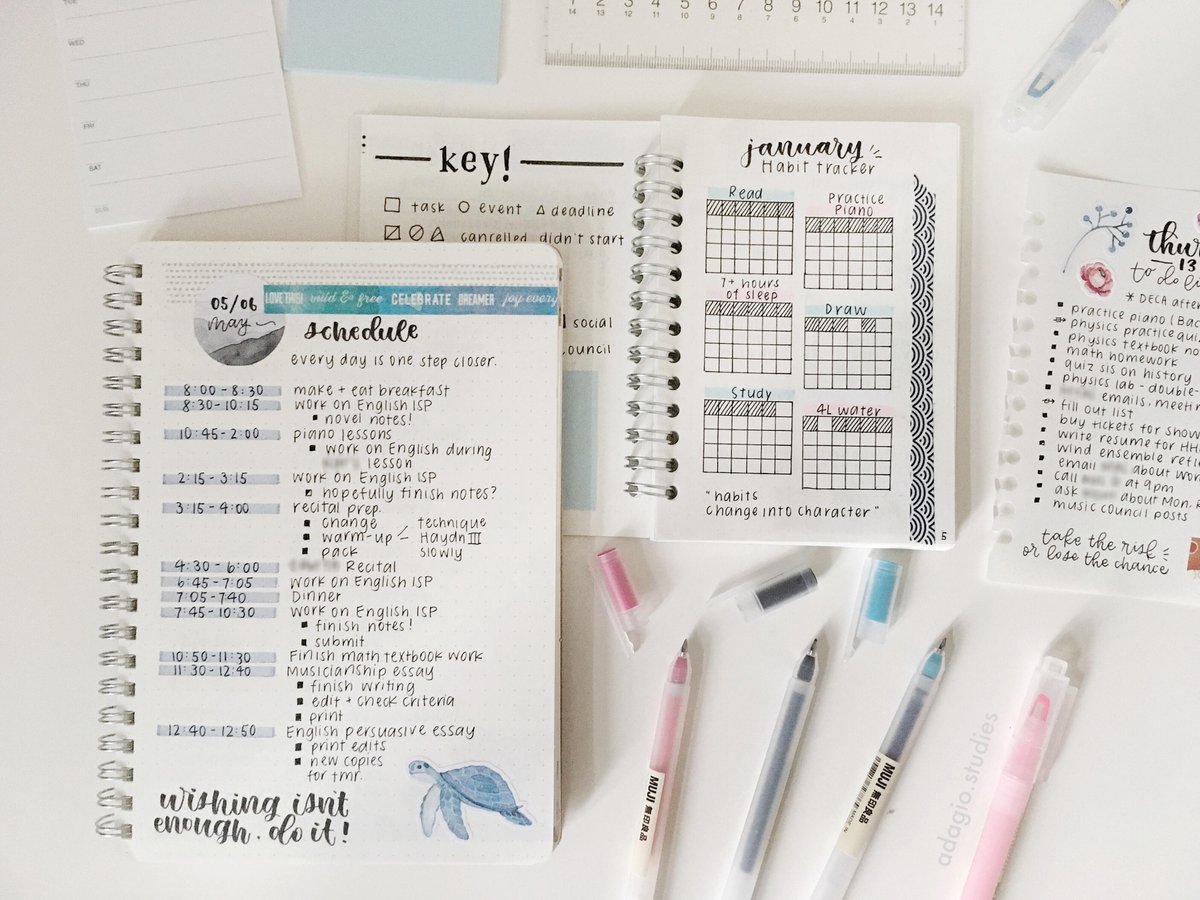 TUE
WED
THU
FRI
SAT
SUN
1 2 3 4 5 6 7 8 9 10 11 12 13 14
14 13 12 11 10 9 8 7 6 5 4 3 2 1
key!
task event deadline
cancelled didn't start
social
council
january
Habit tracker
Read
Practice
Piano
7+ hours
of sleep
Draw
Study
4L water
"habits
change into character"
5
05/06
may
LOVE THIS! wild & free CELEBRATE DREAMER joy every
schedule
every day is one step closer.
8:00-8:30 make + eat breakfast
8:30-10:15 work on English ISP
novel notes!
10:45-2:00 piano lessons
work on English during
lesson
2:15-3:15 work on English ISP
hopefully finish notes?
3:15-4:00 recital prep.
change technique
warm-up Haydn III
pack slowly
4:30-6:00 Recital
6:45-7:05 work on English ISP
7:05-7:40 Dinner
7:45-10:30 work on English ISP
finish notes!
submit
10:50-11:30 Finish math textbook work
11:30-12:40 musicianship essay
finish writing
edit + check criteria
print
12:40-12:50 English persuasive essay
print edits
new copies
for tmr.
wishing isn't
enough. do it!
thur
13
to do li
* DECA after
practice piano (Bac
physics practice quiz
physics textbook no
math homework
quiz sis on history
physics lab - double-
emails, meetin
fill out list
buy tickets for show
write resume for HH
wind ensemble refl
email about wor
call at 9pm
ask about Mon. R
music council posts
take the risk
or lose the chance
MUJI 無印良品
MUJI 無印良品
adagio.studies